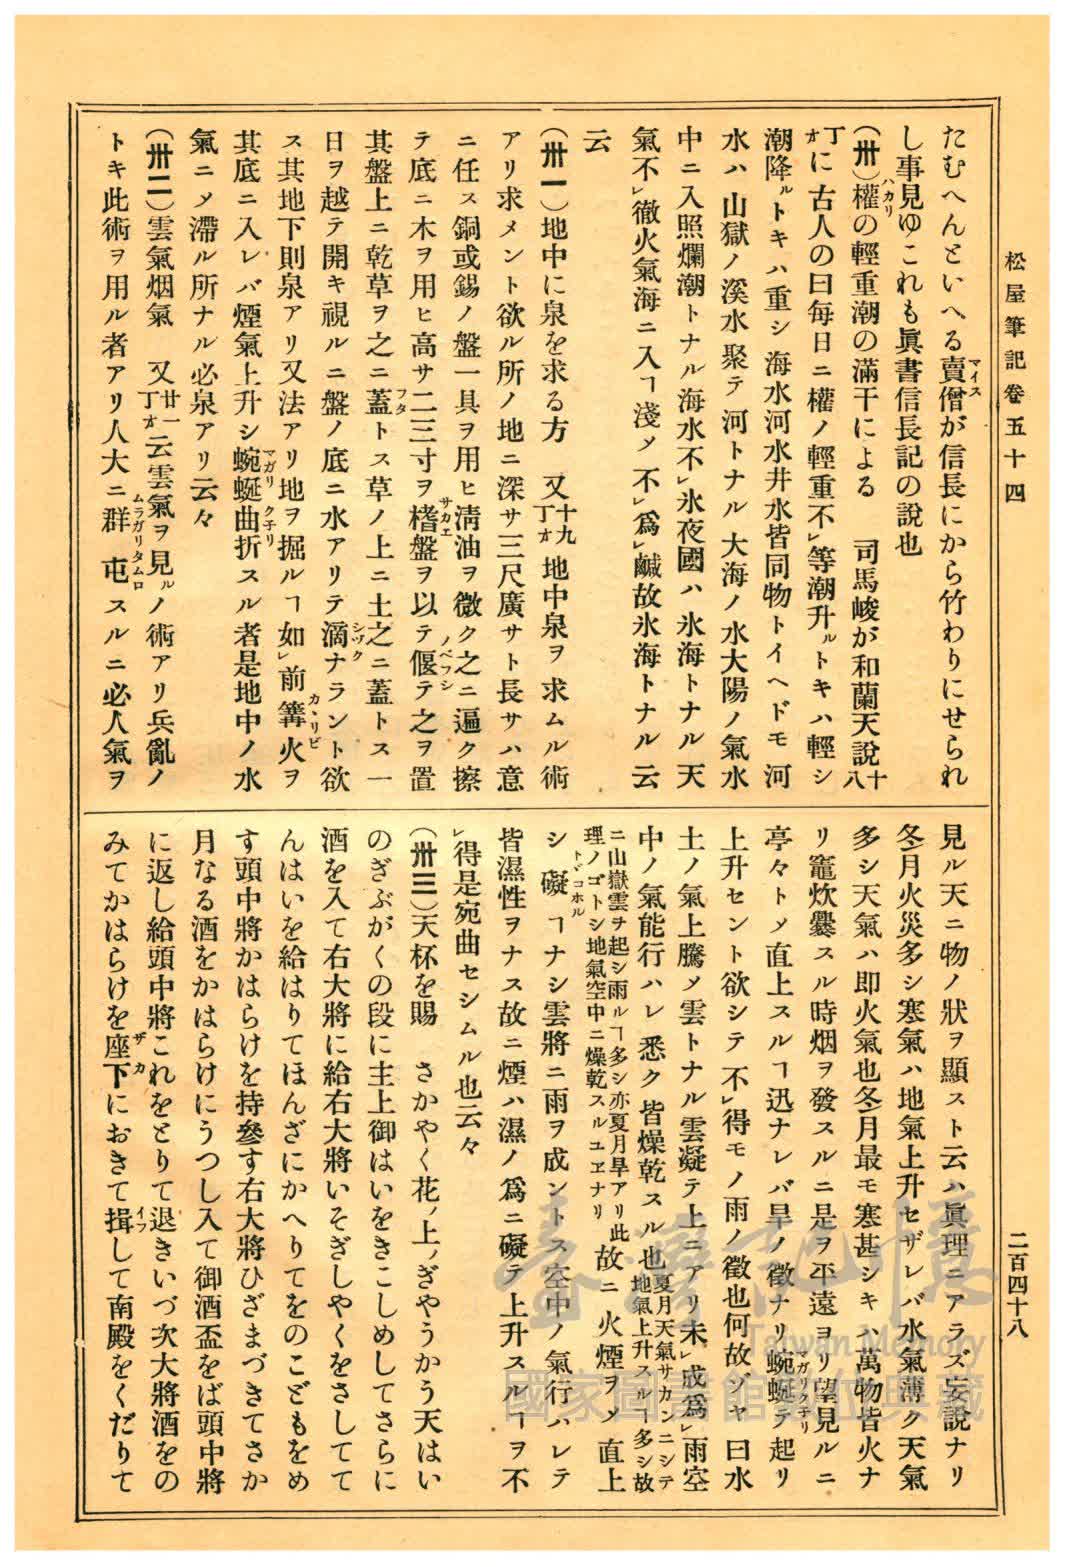 松屋筆記卷五十四
二百四十八
たむへんといへる賣僧マイスが信長にから竹わりにせられ
し事見ゆこれも眞書信長記の說也
(卅)權ハカリの輕重潮の滿干による 司馬峻が和蘭天說十八
丁オに古人の曰每日ニ權ノ輕重不レ等潮升ルトキハ輕シ
潮降ルトキハ重シ海水河水井水皆同物トイヘドモ河
水ハ山獄ノ溪水聚テ河トナル大海ノ水大陽ノ氣水
中ニ入照爛潮トナル海水不レ氷夜國ハ氷海トナル天
氣不レ徹火氣海ニ入ヿ淺ノ不レ爲レ鹹故氷海トナル云
云
(卅一)地中に泉を求る方 又十九丁オ地中泉ヲ求ムル術
アリ求メント欲ル所ノ地ニ深サ三尺廣サト長サハ意
ニ任ス銅或錫ノ盤一具ヲ用ヒ淸油ヲ微ク之ニ遍ク擦
テ底ニ木ヲ用ヒ高サ二三寸ヲ楮サカエ盤ヲ以テ偃ノベフシテ之ヲ置
其盤上ニ乾草ヲ之ニ蓋フタトス草ノ上ニ土之ニ蓋トス一
日ヲ越テ開キ視ルニ盤ノ底ニ水アリテ滴シヅクナラント欲
ス其地下則泉アリ又法アリ地ヲ掘ルヿ如レ前篝火カヽリビヲ
其底ニ入レバ煙氣上升シ蜿蜒マガリクチリ曲折スル者是地中ノ水
氣ニメ滯ル所ナル必泉アリ云々
(卅二)雲氣烟氣 又廿一丁オ云雲氣ヲ見ルノ術アリ兵亂ノ
トキ此術ヲ用ル者アリ人大ニ群ムラガリ屯タムロスルニ必人氣ヲ
見ル天ニ物ノ狀ヲ顯スト云ハ眞理ニアラズ妄說ナリ
冬月火災多シ寒氣ハ地氣上升セザレバ水氣薄ク天氣
多シ天氣ハ卽火氣也冬月最モ寒甚シキハ萬物皆火ナ
リ竈炊爨スル時烟ヲ發スルニ是ヲ平遠ヨリ望見ルニ
亭々トメ直上スルヿ迅ナレバ旱ノ徵ナリ蜿蜒マガリクチリテ起リ
上升セント欲シテ不レ得モノ雨ノ徵也何故ゾヤ曰水
土ノ氣上騰メ雲トナル雲凝テ上ニアリ未レ成爲レ雨空
中ノ氣能行ハレ悉ク皆燥乾スル也夏月天氣サカンニシテ地氣上升スルヿ多シ故
ニ山嶽雲ヲ起シ雨ルヿ多シ亦夏月旱アリ此理ノゴトシ地氣空中ニ燥乾スルユヱナリ故ニ火煙ヲメ直上
シ礙トヾコホルヿナシ雲將ニ雨ヲ成ントス空中ノ氣行ハレテ
皆濕性ヲナス故ニ煙ハ濕ノ爲ニ礙テ上升スルヿヲ不
レ得是宛曲セシムル也云々
(卅三)天杯を賜 さかやく花ノ上ノぎやうかう天はい
のぎぶがくの段に主上御はいをきこしめしてさらに
酒を入て右大將に給右大將いそぎしやくをさしてて
んはいを給はりてほんざにかへりてをのこどもをめ
す頭中將かはらけを持參す右大將ひざまづきてさか
月なる酒をかはらけにうつし入て御酒盃をば頭中將
に返し給頭中將これをとりて退きいづ次大將酒をの
みてかはらけを座下ザカにおきて揖イフして南殿をくだりて
臺灣記憶
Taiwan Memory
國家圖書館數位典藏